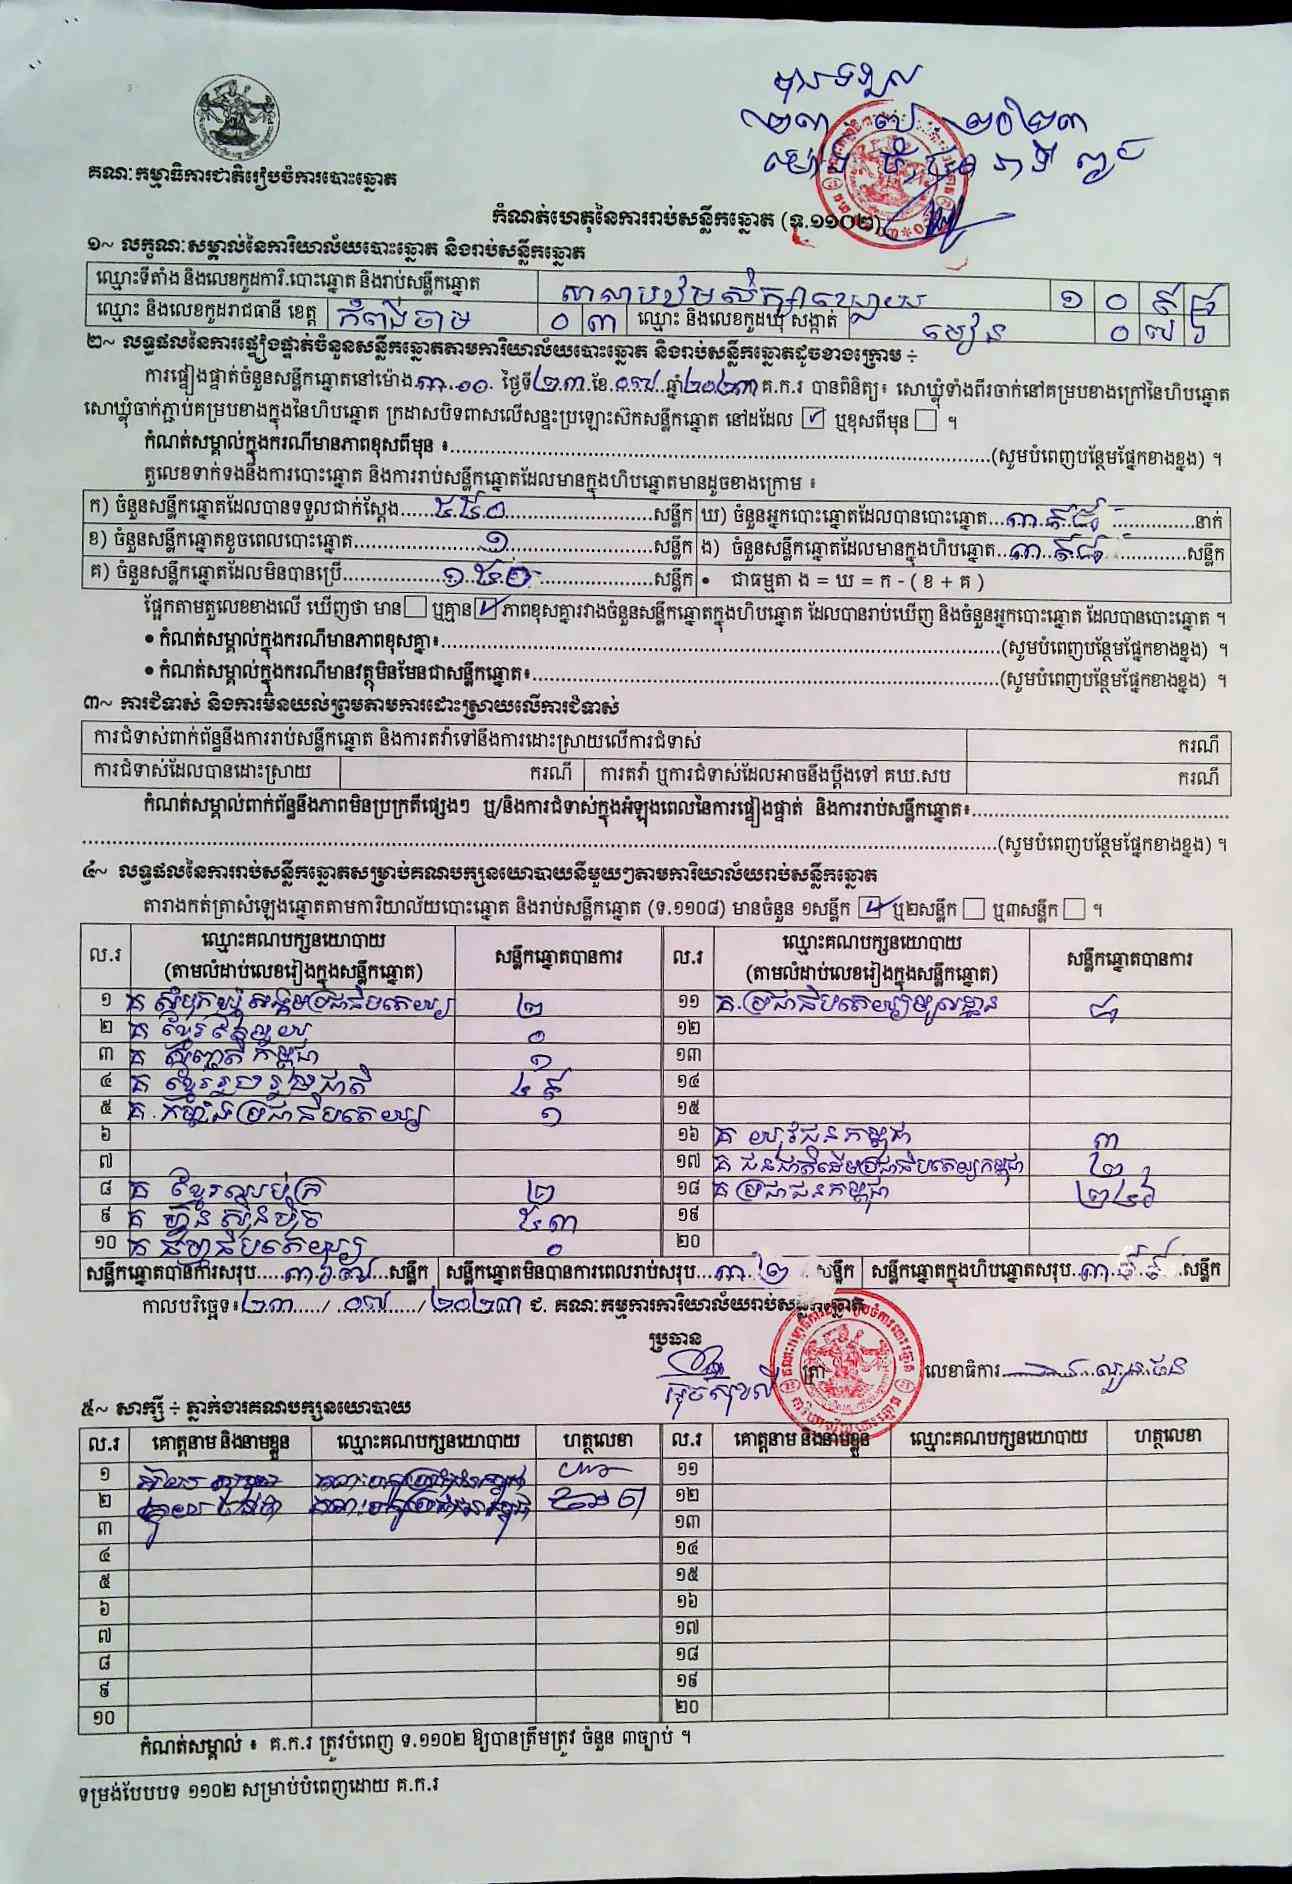 បានទទួល
២៣ ៧ ២០២៣
គណៈកម្មាធិការជាតិរៀបចំការបោះឆ្នោត
កំណត់ហេតុនៃការរាប់សន្លឹកឆ្នោត (ទ.១១០២)
១~ លក្ខណៈសម្គាល់នៃការិយាល័យបោះឆ្នោត និងរាប់សន្លឹកឆ្នោត
ឈ្មោះទីតាំង និងលេខកូដការិ.បោះឆ្នោត និងរាប់សន្លឹកឆ្នោត សាលាបឋមសិក្សា ១ ០ ៩ ៨
ឈ្មោះ និងលេខកូដរាជធានី ខេត្ត កំពង់ចាម ០ ៣ ឈ្មោះ និងលេខកូដឃុំ សង្កាត់ មៀន ០ ៧ ៦
២~ លទ្ធផលនៃការផ្ទៀងផ្ទាត់ចំនួនសន្លឹកឆ្នោតតាមការិយាល័យបោះឆ្នោត និងរាប់សន្លឹកឆ្នោតដូចខាងក្រោម ÷
ការផ្ទៀងផ្ទាត់ចំនួនសន្លឹកឆ្នោតនៅម៉ោង ៣.០០ ថ្ងៃទី ២៣ ខែ ០៧ ឆ្នាំ ២០២៣ គ.ក.រ បានពិនិត្យ៖ សោឃ្លុំទាំងពីរចាក់នៅគម្របខាងក្រៅនៃហិបឆ្នោត
សោឃ្លុំចាក់ភ្ជាប់គម្របខាងក្នុងនៃហិបឆ្នោត ក្រដាសបិទពាសលើសន្ទះប្រឡោះស៊កសន្លឹកឆ្នោត នៅដដែល ☑ ឬខុសពីមុន ☐ ។
កំណត់សម្គាល់ក្នុងករណីមានភាពខុសពីមុន ៖ (សូមបំពេញបន្ថែមផ្នែកខាងខ្នង) ។
តួលេខទាក់ទងនឹងការបោះឆ្នោត និងការរាប់សន្លឹកឆ្នោតដែលមានក្នុងហិបឆ្នោតមានដូចខាងក្រោម ៖
ក) ចំនួនសន្លឹកឆ្នោតដែលបានទទួលជាក់ស្តែង ៥៥០ សន្លឹក ឃ) ចំនួនអ្នកបោះឆ្នោតដែលបានបោះឆ្នោត ៣៩៨ នាក់
ខ) ចំនួនសន្លឹកឆ្នោតខូចពេលបោះឆ្នោត ១ សន្លឹក ង) ចំនួនសន្លឹកឆ្នោតដែលមានក្នុងហិបឆ្នោត ៣៩៨ សន្លឹក
គ) ចំនួនសន្លឹកឆ្នោតដែលមិនបានប្រើ ១៥១ សន្លឹក • ជាធម្មតា ង = ឃ = ក - ( ខ + គ )
ផ្អែកតាមតួលេខខាងលើ ឃើញថា មាន ☐ ឬគ្មាន ☑ ភាពខុសគ្នារវាងចំនួនសន្លឹកឆ្នោតក្នុងហិបឆ្នោត ដែលបានរាប់ឃើញ និងចំនួនអ្នកបោះឆ្នោត ដែលបានបោះឆ្នោត ។
• កំណត់សម្គាល់ក្នុងករណីមានភាពខុសគ្នា៖ (សូមបំពេញបន្ថែមផ្នែកខាងខ្នង) ។
• កំណត់សម្គាល់ក្នុងករណីមានវត្ថុមិនមែនជាសន្លឹកឆ្នោត៖ (សូមបំពេញបន្ថែមផ្នែកខាងខ្នង) ។
៣~ ការជំទាស់ និងការមិនយល់ព្រមតាមការដោះស្រាយលើការជំទាស់
ការជំទាស់ពាក់ព័ន្ធនឹងការរាប់សន្លឹកឆ្នោត និងការតវ៉ាទៅនឹងការដោះស្រាយលើការជំទាស់ ករណី
ការជំទាស់ដែលបានដោះស្រាយ ករណី ការតវ៉ា ឬការជំទាស់ដែលអាចនឹងប្តឹងទៅ គឃ.សប ករណី
កំណត់សម្គាល់ពាក់ព័ន្ធនឹងភាពមិនប្រក្រតីផ្សេងៗ ឬ/និងការជំទាស់ក្នុងអំឡុងពេលនៃការផ្ទៀងផ្ទាត់ និងការរាប់សន្លឹកឆ្នោត៖
(សូមបំពេញបន្ថែមផ្នែកខាងខ្នង) ។
៤~ លទ្ធផលនៃការរាប់សន្លឹកឆ្នោតសម្រាប់គណបក្សនយោបាយនីមួយៗតាមការិយាល័យរាប់សន្លឹកឆ្នោត
តារាងកត់ត្រាសំឡេងឆ្នោតតាមការិយាល័យបោះឆ្នោត និងរាប់សន្លឹកឆ្នោត (ទ.១១០៨) មានចំនួន ១សន្លឹក ☑ ឬ២សន្លឹក ☐ ឬ៣សន្លឹក ☐ ។
ល.រ ឈ្មោះគណបក្សនយោបាយ (តាមលំដាប់លេខរៀងក្នុងសន្លឹកឆ្នោត) សន្លឹកឆ្នោតបានការ ល.រ ឈ្មោះគណបក្សនយោបាយ (តាមលំដាប់លេខរៀងក្នុងសន្លឹកឆ្នោត) សន្លឹកឆ្នោតបានការ
១ គ សំបុកឃ្មុំសង្គមប្រជាធិបតេយ្យ ២ ១១ គ.ប្រជាធិបតេយ្យមូលដ្ឋាន ៨
២ គ ខ្មែរឥស្សរៈ ០ ១២
៣ គ សញ្ជាតិកម្ពុជា ១ ១៣
៤ គ ខ្មែររួបរួមជាតិ ៤៩ ១៤
៥ គ.កម្លាំងប្រជាធិបតេយ្យ ១ ១៥
៦ ១៦ គ យុវជនកម្ពុជា ៣
៧ ១៧ គ ជនជាតិដើមប្រជាធិបតេយ្យកម្ពុជា ២
៨ គ ខ្មែរឈប់ក្រ ២ ១៨ គ ប្រជាជនកម្ពុជា ២៤៦
៩ គ ហ្វ៊ុនស៊ិនប៉ិច ៥៣ ១៩
១០ គ ធម្មាធិបតេយ្យ ០ ២០
សន្លឹកឆ្នោតបានការសរុប ៣៦៧ សន្លឹក សន្លឹកឆ្នោតមិនបានការពេលរាប់សរុប សន្លឹក សន្លឹកឆ្នោតក្នុងហិបឆ្នោតសរុប សន្លឹក
កាលបរិច្ឆេទ៖ ២៣ / ០៧ / ២០២៣ ជ. គណៈកម្មការការិយាល័យរាប់សន្លឹកឆ្នោត
ប្រធាន
ត្រា លេខាធិការ
៥~ សាក្សី ÷ ភ្នាក់ងារគណបក្សនយោបាយ
ល.រ គោត្តនាម និងនាមខ្លួន ឈ្មោះគណបក្សនយោបាយ ហត្ថលេខា ល.រ គោត្តនាម និងនាមខ្លួន ឈ្មោះគណបក្សនយោបាយ ហត្ថលេខា
១ គណៈបក្សប្រជាជនកម្ពុជា ១១
២ គណៈបក្សប្រជាជនកម្ពុជា ១២
៣ ១៣
៤ ១៤
៥ ១៥
៦ ១៦
៧ ១៧
៨ ១៨
៩ ១៩
១០ ២០
កំណត់សម្គាល់ ៖ គ.ក.រ ត្រូវបំពេញ ទ.១១០២ ឱ្យបានត្រឹមត្រូវ ចំនួន ៣ច្បាប់ ។
ទម្រង់បែបបទ ១១០២ សម្រាប់បំពេញដោយ គ.ក.រ